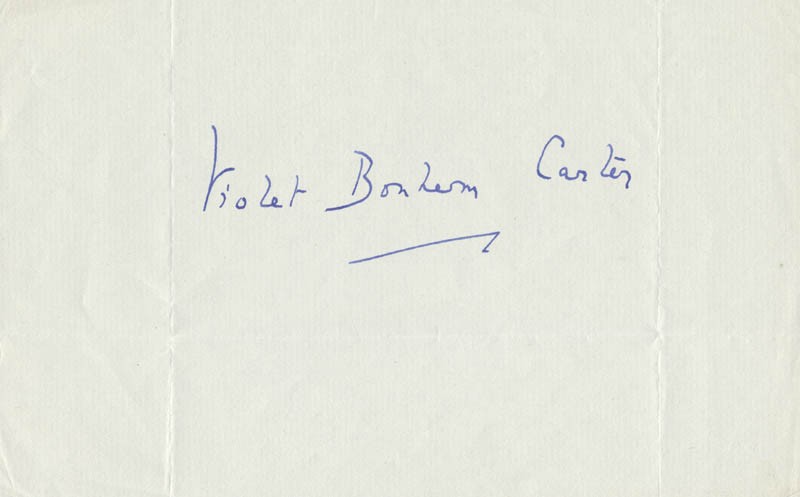 Violet Bonham Carter